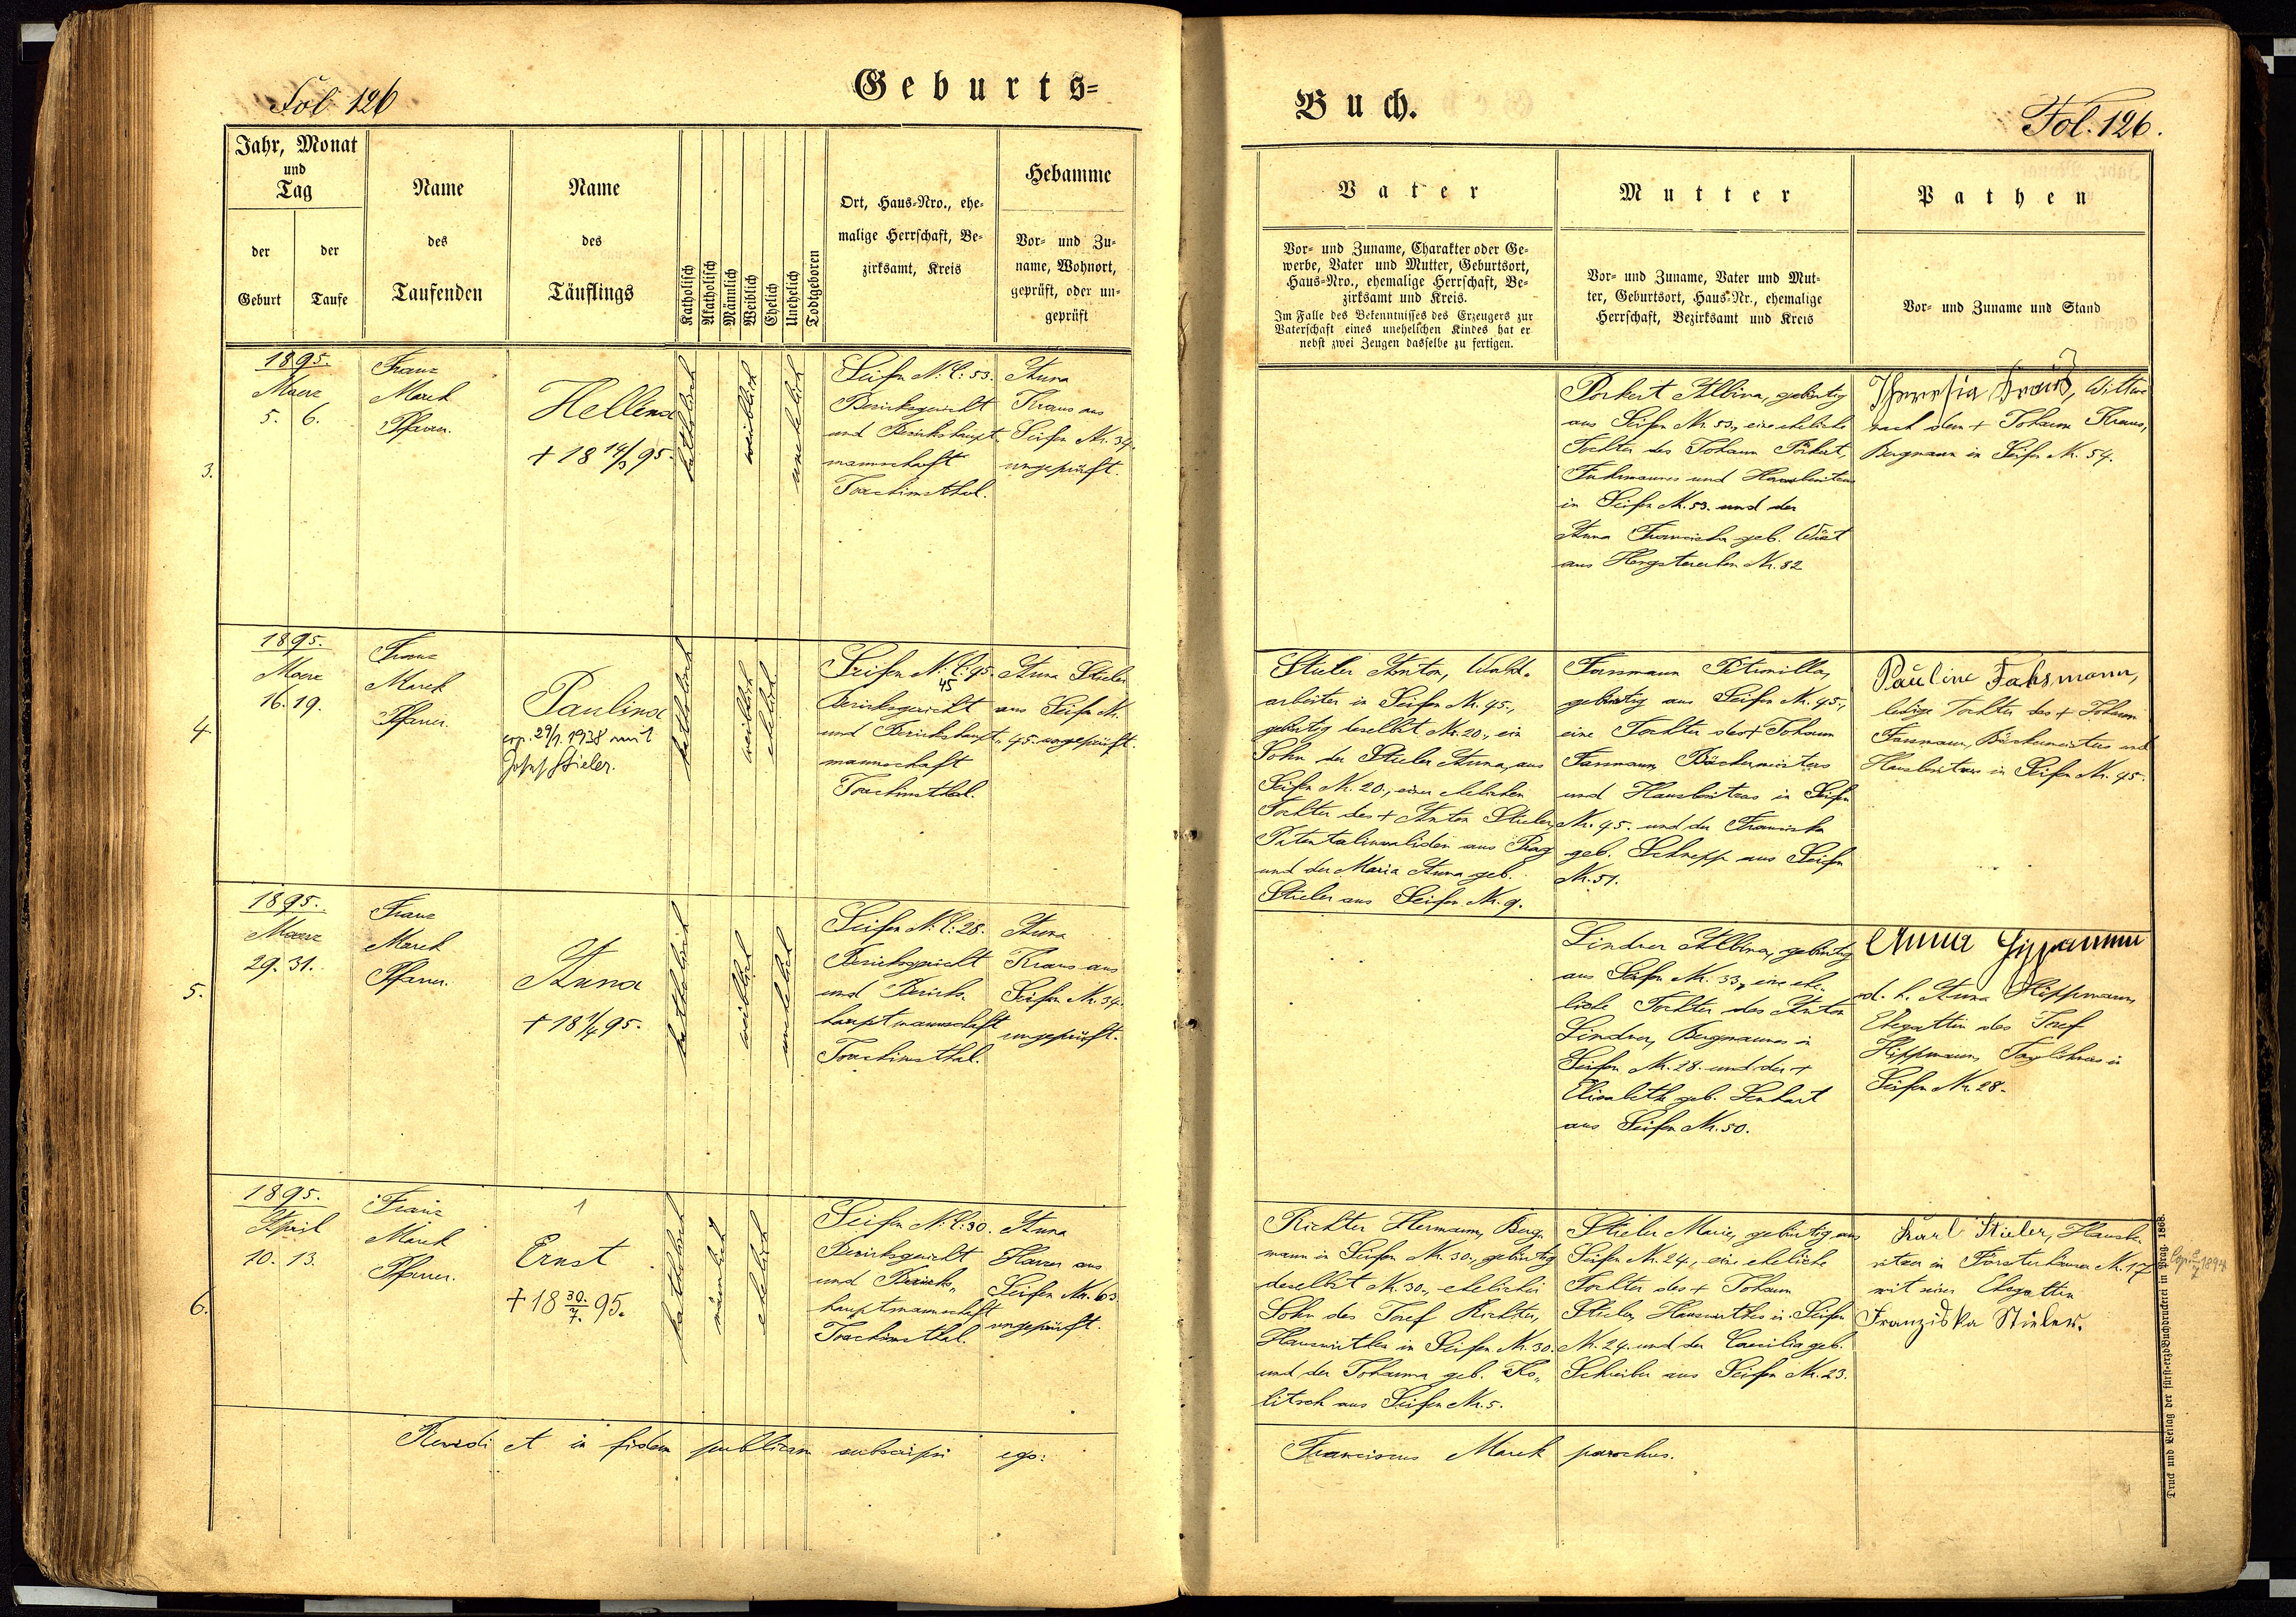 Fol 126
Geburts=
Buch.
Fol. 126.
Jahr, Monat
und
Tag
der
Geburt
der
Taufe
Name
des
Taufenden
Name
des
Täuflings
Katholisch
Akatholisch
Männlich
Weiblich
Ehelich
Unehelich
Todtgeboren
Ort, Haus-Nro., ehe-
malige Herrschaft, Be-
zirksamt, Kreis
Hebamme
Vor- und Zu-
name, Wohnort,
geprüft, oder un-
geprüft
Vater
Vor- und Zuname, Charakter oder Ge-
werbe, Vater und Mutter, Geburtsort,
Haus-Nro., ehemalige Herrschaft, Be-
zirksamt und Kreis.
Im Falle des Bekenntnisses des Erzeugers zur
Vaterschaft eines unehelichen Kindes hat er
nebst zwei Zeugen dasselbe zu fertigen.
Mutter
Vor- und Zuname, Vater und Mut-
ter, Geburtsort, Haus-Nr., ehemalige
Herrschaft, Bezirksamt und Kreis
Pathen
Vor- und Zuname und Stand
3.
1895.
Maerz
5. 6.
Franz
Marek
Pfarrer.
Hellena
+ 18 14/3 95.
katholisch
weiblich
unehelich
Seifen N. C: 53.
Bezirksgericht
und Bezirkshaupt-
mannschaft
Joachimsthal.
Anna
Kraus aus
Seifen Nr. 34.
ungeprüft.
Porkert Albina, gebürtig
aus Seifen Nr. 53., eine eheliche
Tochter des Johann Porkert,
Fuhrmannes und Hausbesitzers
in Seifen Nr. 53. und der
Anna Franziska geb. Wüst
aus Hengstererben Nr. 82
Theresia Kraus, Witwe
nach dem + Johann Kraus,
Bergmann in Seifen Nr. 54.
4.
1895.
Maerz
16. 19.
Franz
Marek
Pfarrer.
Paulina
cop. 29/1. 1938 mit
Josef Stieler.
katholisch
weiblich
ehelich
Seifen N. C: 95.
45
Bezirksgericht
und Bezirkshaupt-
mannschaft
Joachimsthal.
Anna Stieler
aus Seifen Nr.
45. ungeprüft.
Stieler Anton, Wald-
arbeiter in Seifen Nr. 45.,
gebürtig daselbst Nr. 20., ein
Sohn der Stieler Anna, aus
Seifen Nr. 20., einer ehelichen
Tochter des + Anton Stieler,
Patentalinvaliden aus Prag
und der Maria Anna geb.
Stieler aus Seifen Nr. 9.
Fassmann Petronilla,
gebürtig aus Seifen Nr. 45.,
eine Tochter des + Johann
Fassmann, Bäckermeisters
und Hausbesitzers in Seifen
Nr. 45. und der Franziska
geb. Schnepp aus Seifen
Nr. 51.
Pauline Fahsmann,
ledige Tochter des + Johann
Fassmann, Bäckermeisters und
Hausbesitzers in Seifen Nr. 45.
5.
1895.
Maerz
29. 31.
Franz
Marek
Pfarrer.
Anna
+ 18 1/4 95.
katholisch
weiblich
unehelich
Seifen N. C: 28.
Bezirksgericht
und Bezirks-
hauptmannschaft
Joachimsthal.
Anna
Kraus aus
Seifen Nr. 34.
ungeprüft.
Lindner Albina, gebürtig
aus Seifen Nr. 33., eine ehe-
liche Tochter des Anton
Lindner, Bergmannes in
Seifen Nr. 28. und der +
Elisabeth geb. Lenhart
aus Seifen Nr. 50.
Anna
d. h. Anna Hippmann,
Ehegattin des Josef
Hippmann, Taglöhners in
Seifen Nr. 28.
6.
1895.
April
10. 13.
Franz
Marek
Pfarrer.
1
Ernst
+ 18 30./7. 95.
katholisch
männlich
ehelich
Seifen N. C: 30.
Bezirksgericht
und Bezirks-
hauptmannschaft
Joachimsthal.
Anna
aus
Seifen Nr. 63.
ungeprüft.
Richter Hermann, Berg-
mann in Seifen Nr. 30., gebürtig
daselbst Nr. 30., ehelicher
Sohn des Josef Richter,
Hauswirthen in Seifen Nr. 30.
und der Johanna geb. Ko-
litsch aus Seifen Nr. 5.
Stieler Marie, gebürtig aus
Seifen Nr. 24., eine eheliche
Tochter des + Johann
Stieler, Hauswirthes in Seifen
N. 24. und der Caecilia geb.
Schreiber aus Seifen Nr. 23.
Karl Stieler, Hausbe-
sitzer in Försterhäuser N. 17
mit seiner Ehegattin
Franziska Stieler.
Revidi et in fidem publicam subscripsi ego:
Franciscus Marek parochus.
Druck und Verlag der fürst-erzb. Buchdruckerei in Prag. 1868.